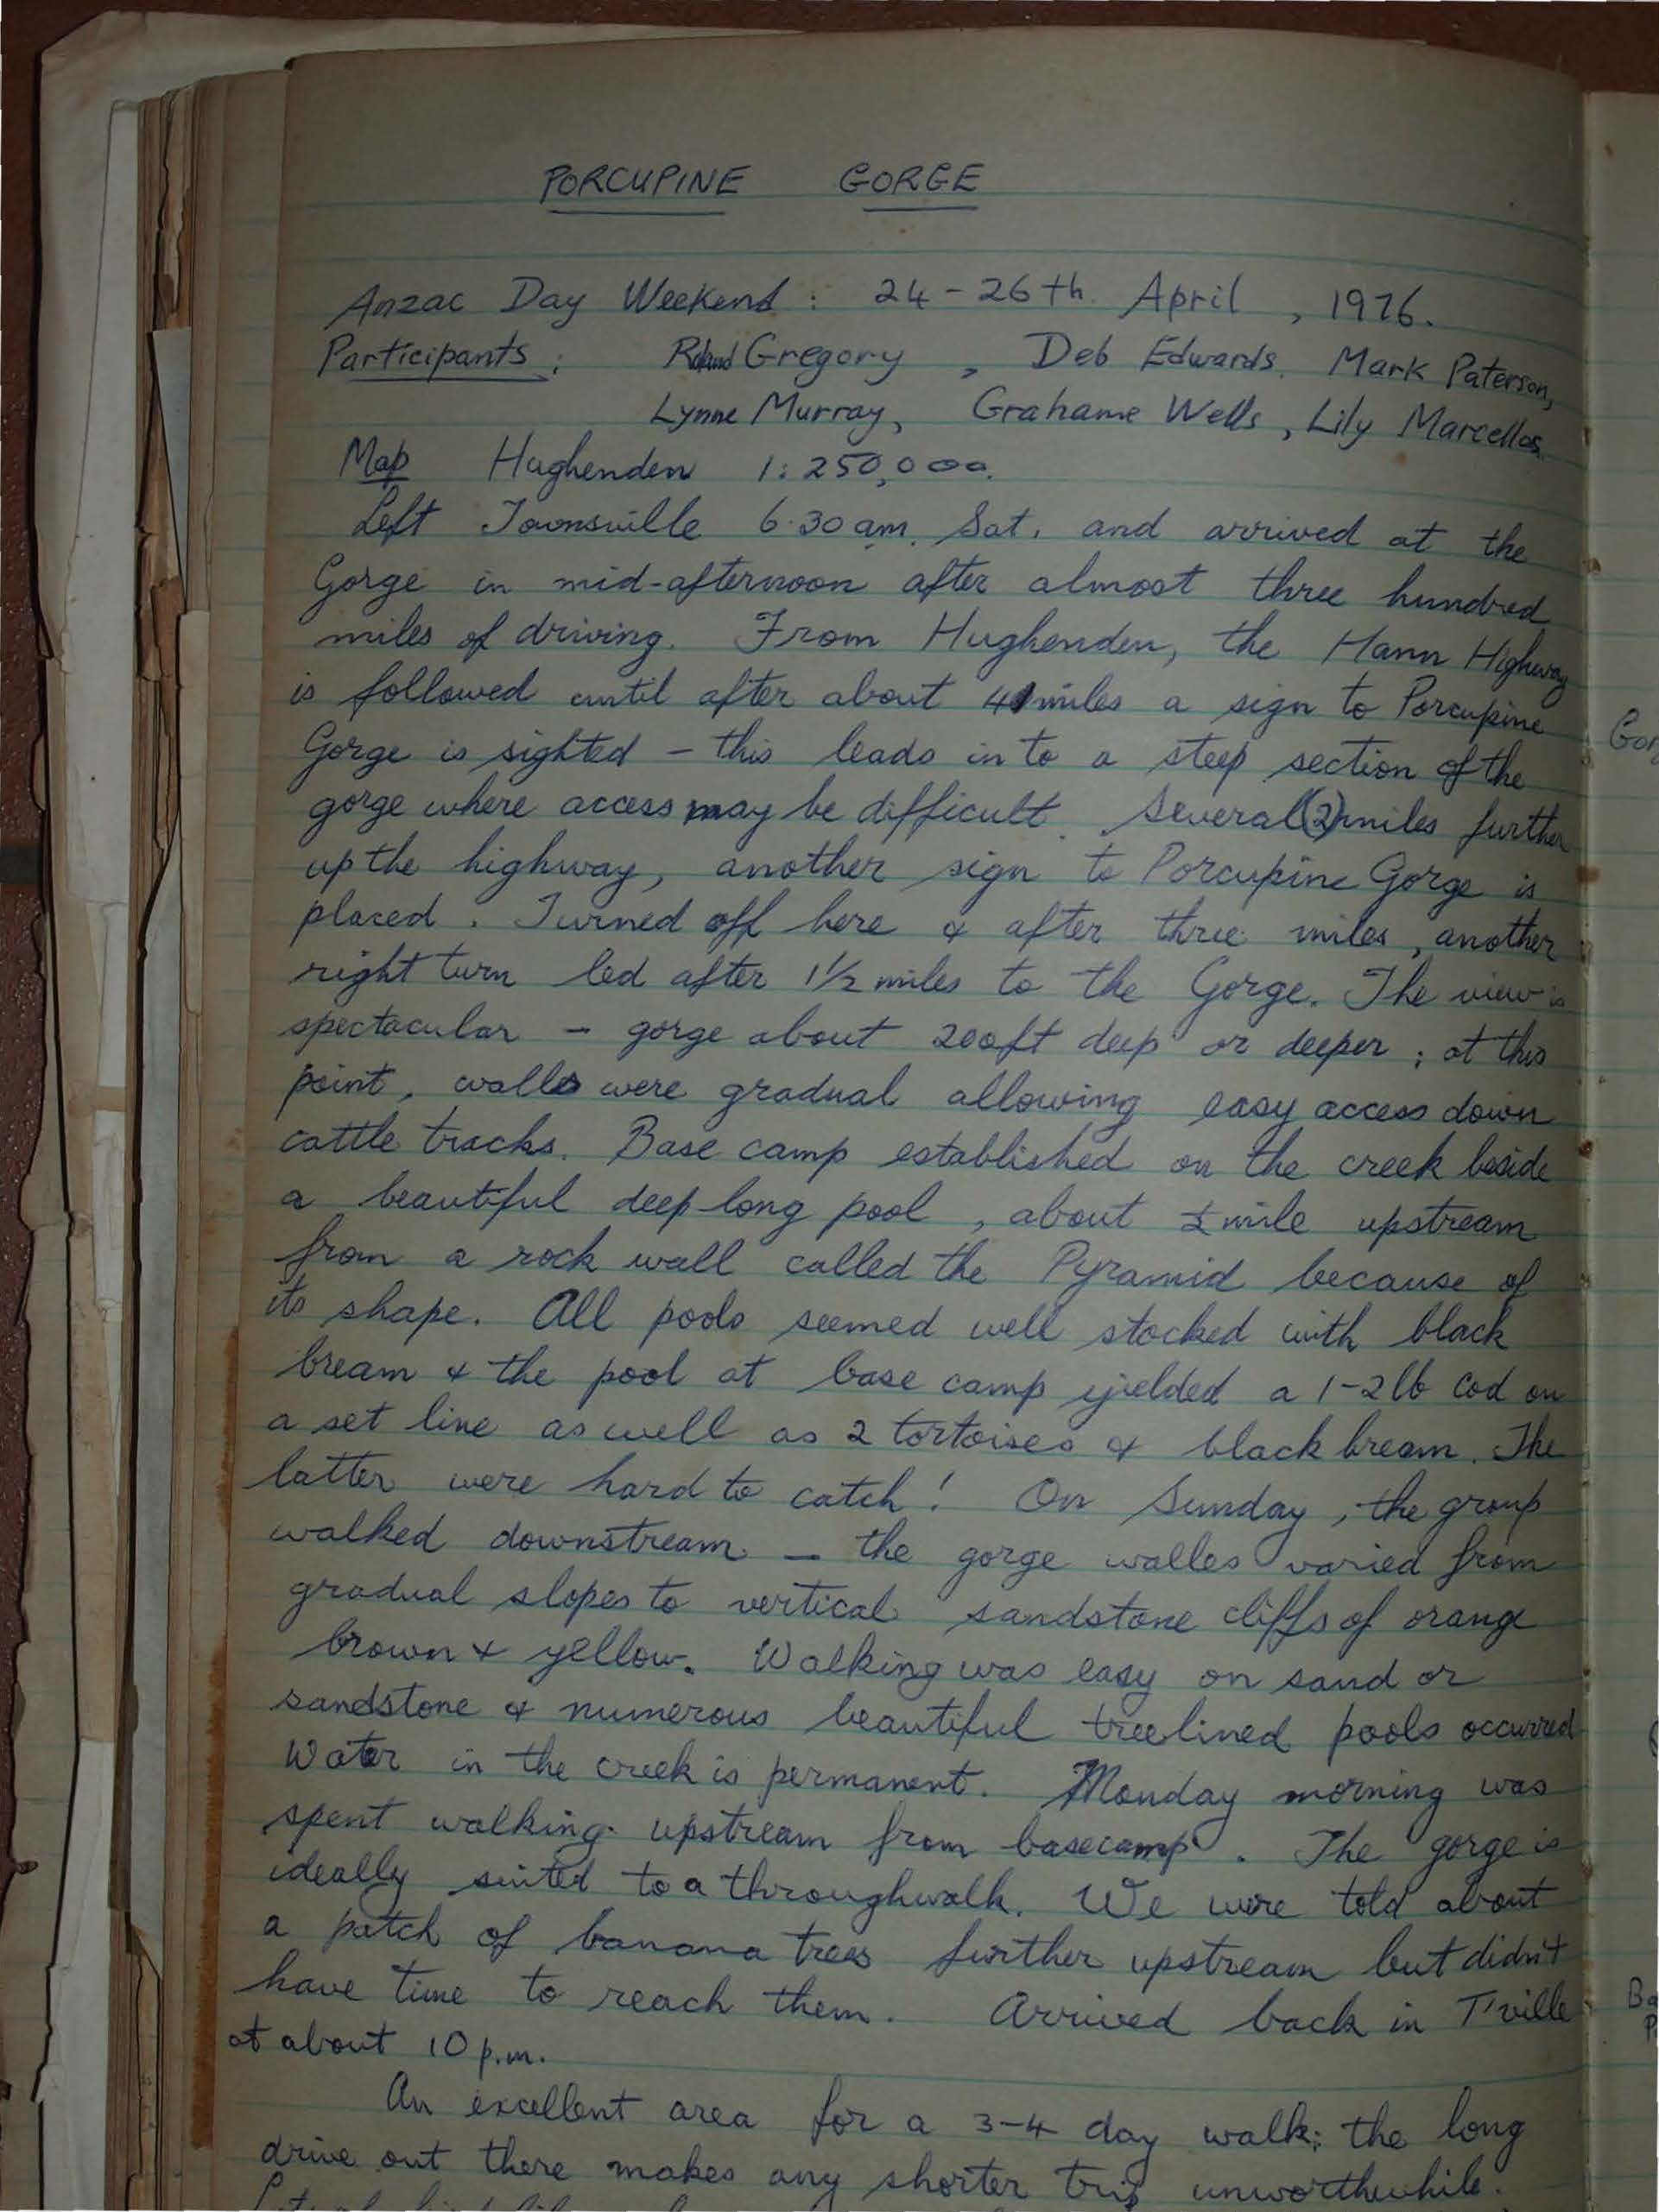 PORCUPINE GORGE
Anzac Day Weekend : 24-26th April, 1976.
Participants : Roland Gregory, Deb Edwards, Mark Paterson,
Lynne Murray, Grahame Wells, Lily Marcellos.
Map Hughenden 1:250,000.
Left Townsville 6.30 am. Sat. and arrived at the
Gorge in mid-afternoon after almost three hundred
miles of driving. From Hughenden, the Hann Highway
is followed until after about 41 miles a sign to Porcupine
Gorge is sighted - this leads in to a steep section of the
gorge where access may be difficult. Several (2) miles further
up the highway, another sign to Porcupine Gorge is
placed. Turned off here & after three miles, another
right turn led after 1½ miles to the Gorge. The view is
spectacular - gorge about 200ft deep or deeper; at this
point, walls were gradual allowing easy access down
cattle tracks. Base camp established on the creek beside
a beautiful deep long pool, about ½ mile upstream
from a rock wall called the Pyramid because of
its shape. All pools seemed well stocked with black
bream & the pool at base camp yielded a 1-2 lb cod on
a set line as well as 2 tortoises & black bream. The
latter were hard to catch! On Sunday, the group
walked downstream - the gorge walles varied from
gradual slopes to vertical sandstone cliffs of orange
brown & yellow. Walking was easy on sand or
sandstone & numerous beautiful treelined pools occurred
Water in the creek is permanent. Monday morning was
spent walking upstream from basecamp. The gorge is
ideally suited to a throughwalk. We were told about
a patch of banana trees further upstream but didn't
have time to reach them. Arrived back in T'ville
at about 10 p.m.
An excellent area for a 3-4 day walk; the long
drive out there makes any shorter trip unworthwhile.